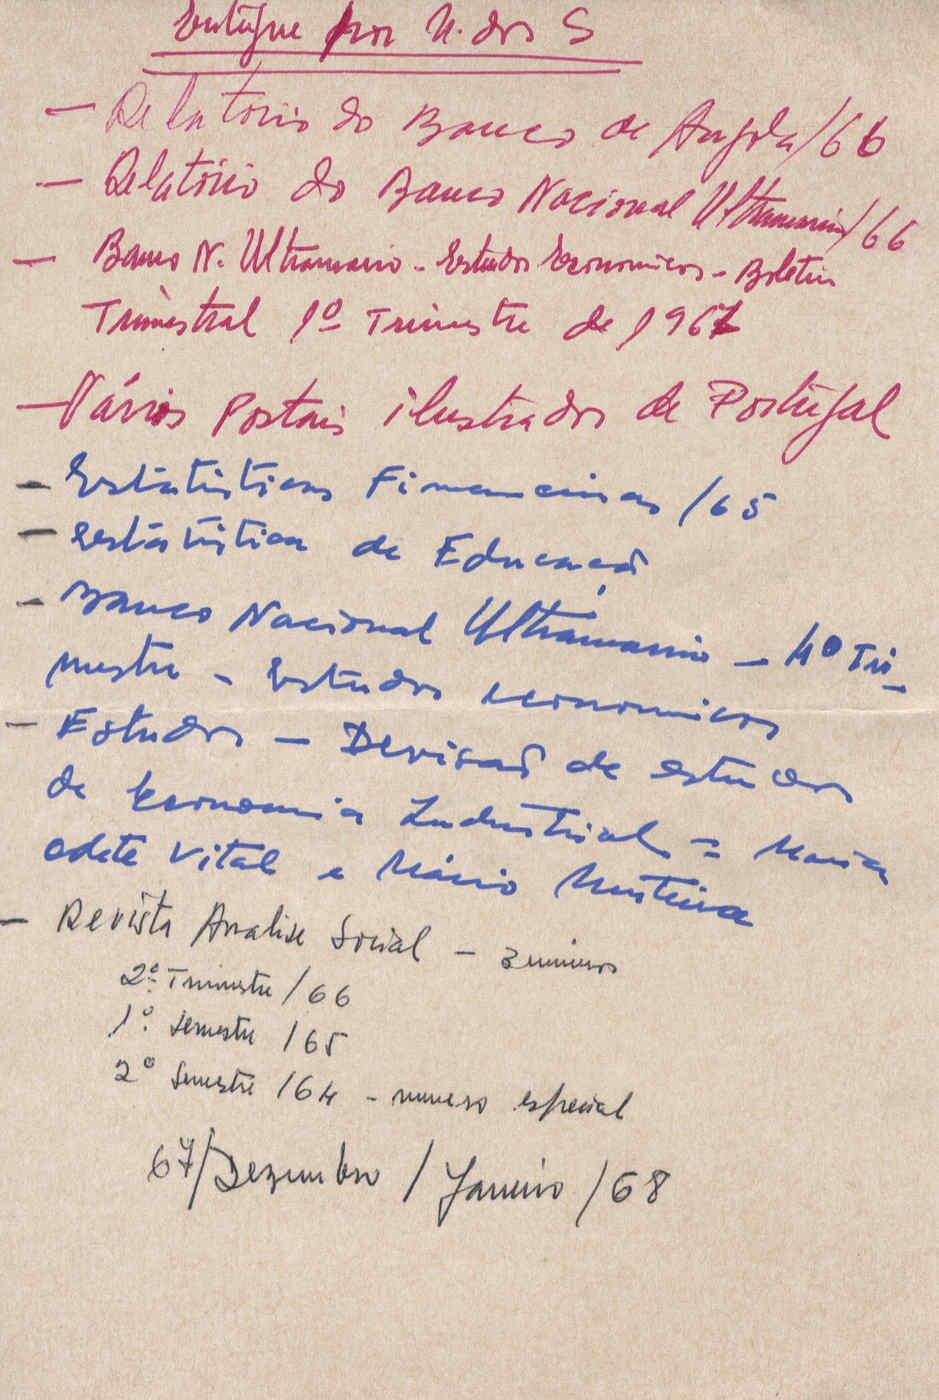 Entregue por M. dos S
— Relatório do Banco de Angola/66
— Relatório do Banco Nacional Ultramarino/66
— Banco N. Ultramarino - Estudos Economicos - Boletim
Trimestral 1º Trimestre de 1967
— Vários Postais ilustrados de Portugal
- Estatisticas Financeiras /65
- Estatistica de Educação
- Banco Nacional Ultramarino - 4º Tri-
mestre - Estudos economicos
- Estudos - Devisão de estudos
de Economia Industrial = Maria
Odete Vital e Mário Murteira
- Revista Analise Social - 3 numeros
2º Trimestre /66
1º Semestre /65
2º Semestre /64 - numero especial
67/Dezembro / Janeiro /68